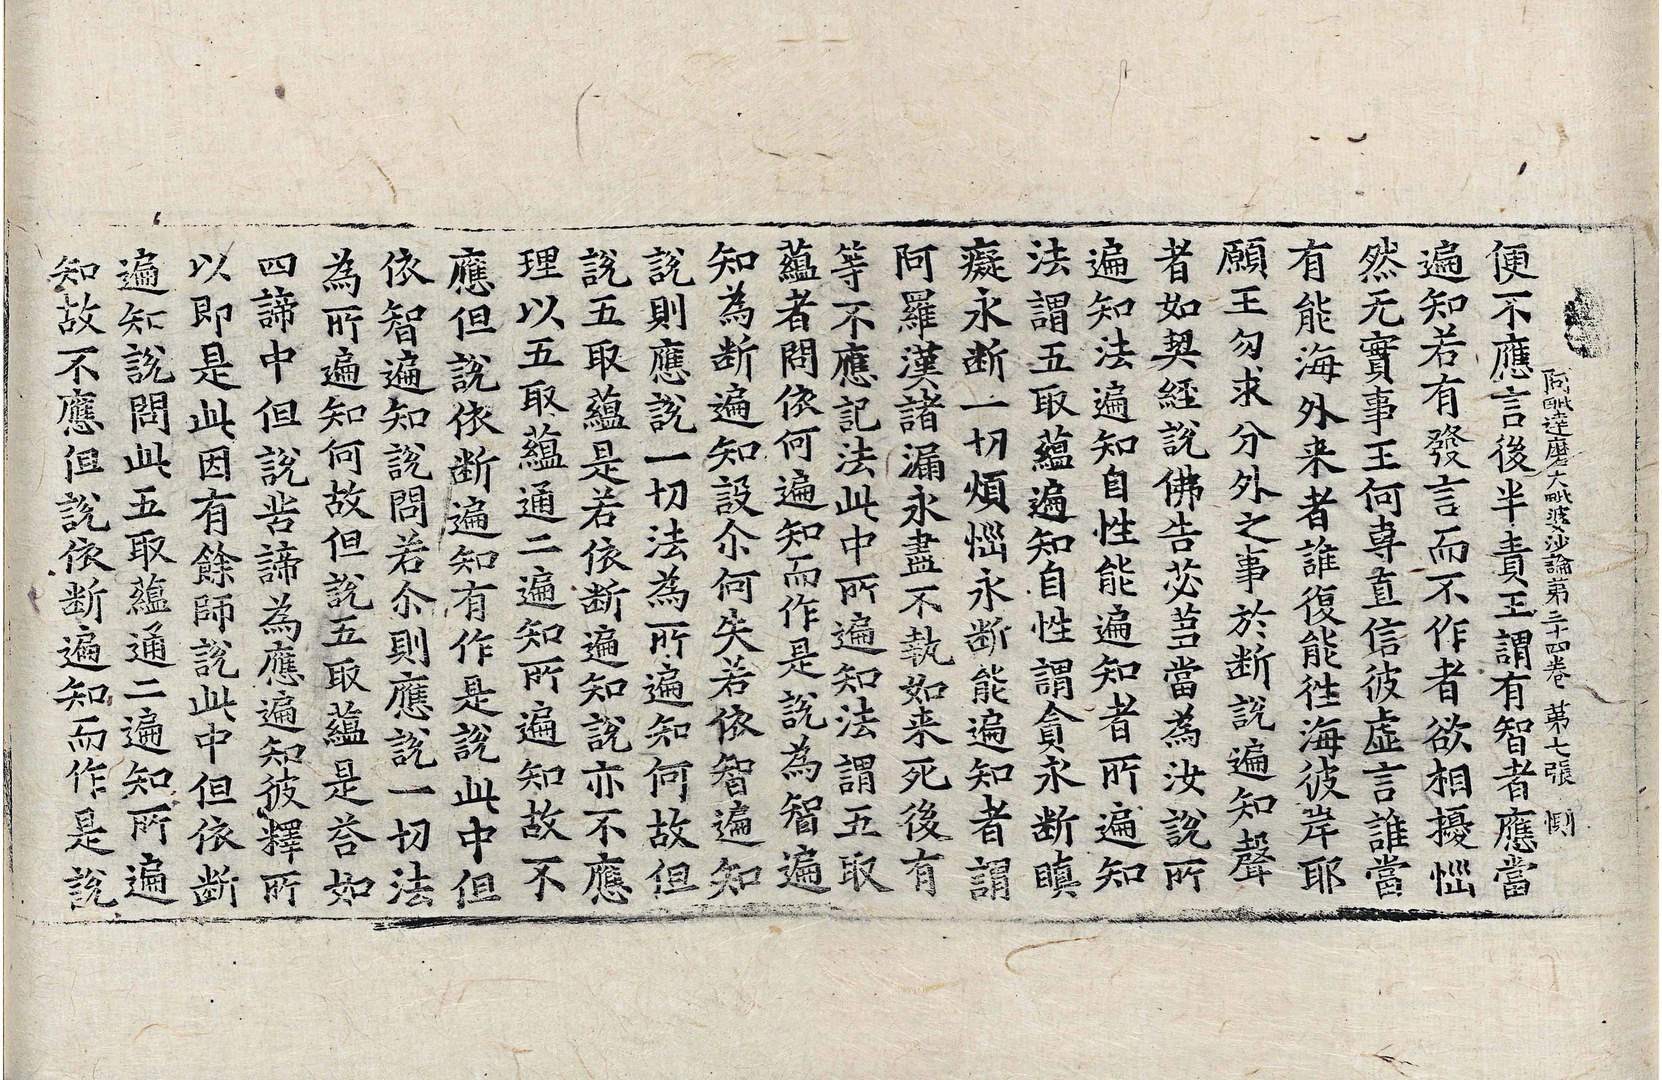 阿毗達磨大毗婆沙論第三十四卷 第七張 惻
便不應言後半責王謂有智者應當
遍知若有發言而不作者欲相擾惱
然无實事王何專直信彼虛言誰當
有能海外来者誰復能徃海彼岸耶
願王勿求分外之事於断說遍知聲
者如契經說佛告苾芻當為汝說所
遍知法遍知自性能遍知者所遍知
法謂五取蘊遍知自性謂貪永断瞋
癡永断一切煩惱永断能遍知者謂
阿羅漢諸漏永盡不執如来死後有
等不應記法此中所遍知法謂五取
蘊者問依何遍知而作是說為智遍
知為断遍知設尒何失若依智遍知
說則應說一切法為所遍知何故但
說五取蘊是若依断遍知說亦不應
理以五取蘊通二遍知所遍知故不
應但說依断遍知有作是說此中但
依智遍知說問若尒則應說一切法
為所遍知何故但說五取蘊是荅如
四諦中但說苦諦為應遍知彼釋所
以即是此因有餘師說此中但依断
遍知說問此五取蘊通二遍知所遍
知故不應但說依断遍知而作是說